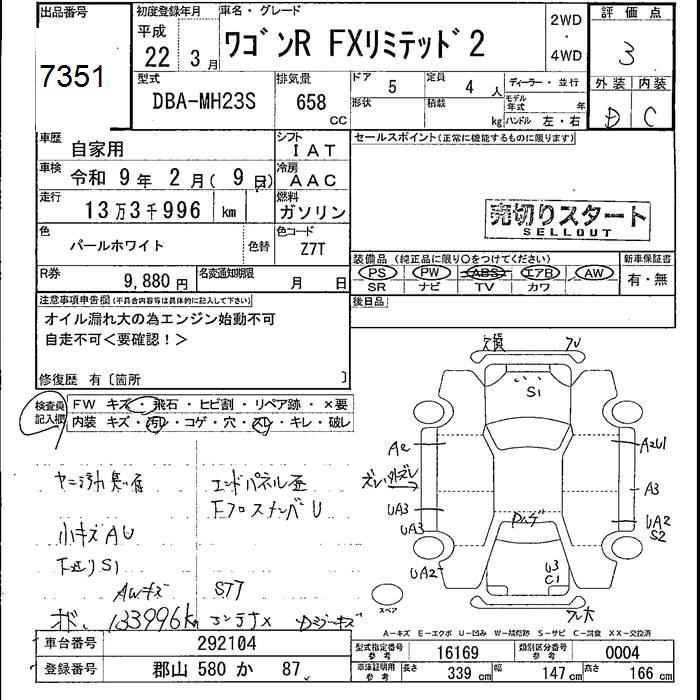 出品番号
7351
初度登録年月
平成
22 年 3 月
車名・グレード
ワゴンR FXリミテッド2
2WD
・
4WD
評価点
3
外装 内装
D C
型式
DBA-MH23S
排気量
658
CC
ドア 5
定員 4 人
形状
積載 kg
ディーラー・並行
モデル年式 年
ハンドル 左・右
車歴
自家用
シフト
IAT
車検
令和 9 年 2 月( 9 日)
冷房
AAC
走行
13万3千996 km
燃料
ガソリン
色
パールホワイト
色替
色コード
Z7T
R券
9,880 円
名変通知期限
月 日
セールスポイント(正常に機能するものに限ります)
売切りスタート
SELLOUT
装備品 (純正品に限り○をつけてください)
PS PW ABS エアB AW
SR ナビ TV カワ
新車保証書
有・無
後日品
注意事項申告欄(不具合内容等は具体的に記入して下さい)
オイル漏れ大の為エンジン始動不可
自走不可<要確認!>
修復歴 有〔箇所 〕
検査員記入欄
FW キズ・飛石・ヒビ割・リペア跡・×要
内装 キズ・汚レ・コゲ・穴・スレ・キレ・破レ
小キズAU
下廻りS1
AWキズ
133996km
エンドパネル歪
S1
A2
AZU1
A3
UA3
UA3
UA2
UA2
S2
U3
C1
スペア
A-キズ E-エクボ U-凹み W-補修跡 S-サビ C-腐食 XX-交換済
車台番号
292104
登録番号
郡山 580 か 87
型式指定番号
参考
16169
類別区分番号
参考
0004
車庫証明用
参考
長さ 339 cm 幅 147 cm 高さ 166 cm